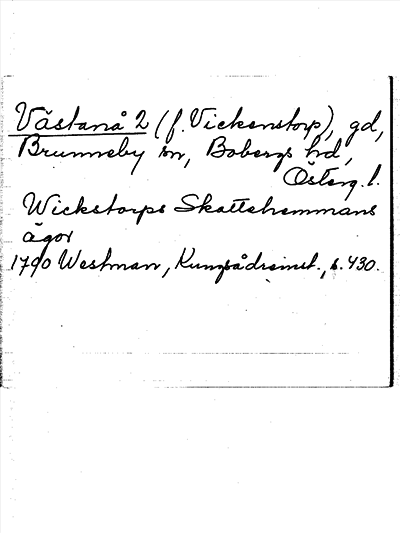 Västanå 2 (f. Vickenstorp), gd,
Brunneby sn, Bobergs hd,
Österg. l.
Wickstorps Skattehemmans
ägor
1790 Westman, Kungsådremst., s. 430.